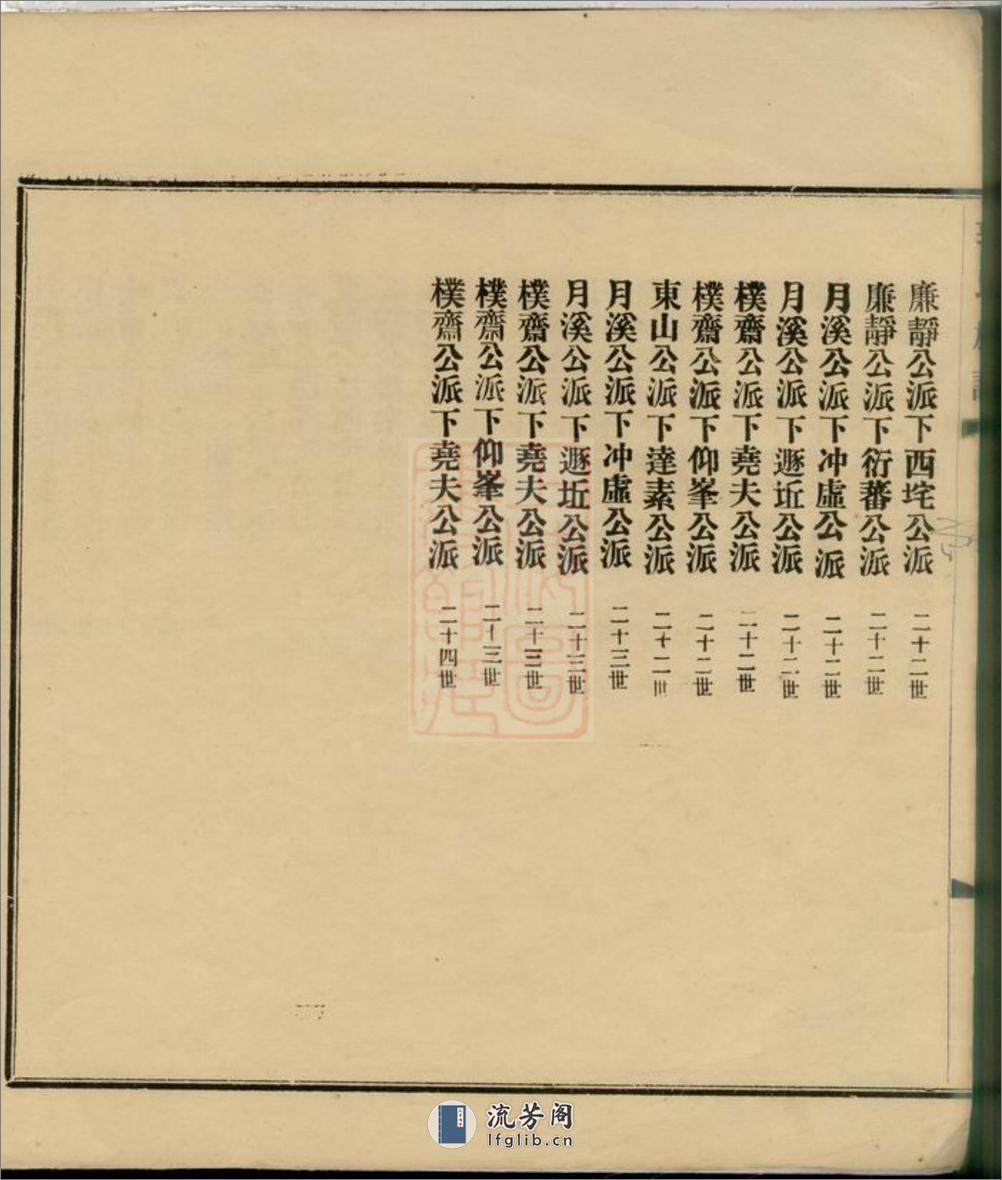 廉靜公派下西垞公派 二十二世
廉靜公派下衍蕃公派 二十二世
月溪公派下冲虛公派 二十二世
月溪公派下遯坵公派 二十二世
樸齋公派下堯夫公派 二十二世
樸齋公派下仰峯公派 二十二世
東山公派下達素公派 二十二世
月溪公派下冲虛公派 二十三世
月溪公派下遯坵公派 二十三世
樸齋公派下堯夫公派 二十三世
樸齋公派下仰峯公派 二十三世
樸齋公派下堯夫公派 二十四世
流芳阁
lfglib.cn